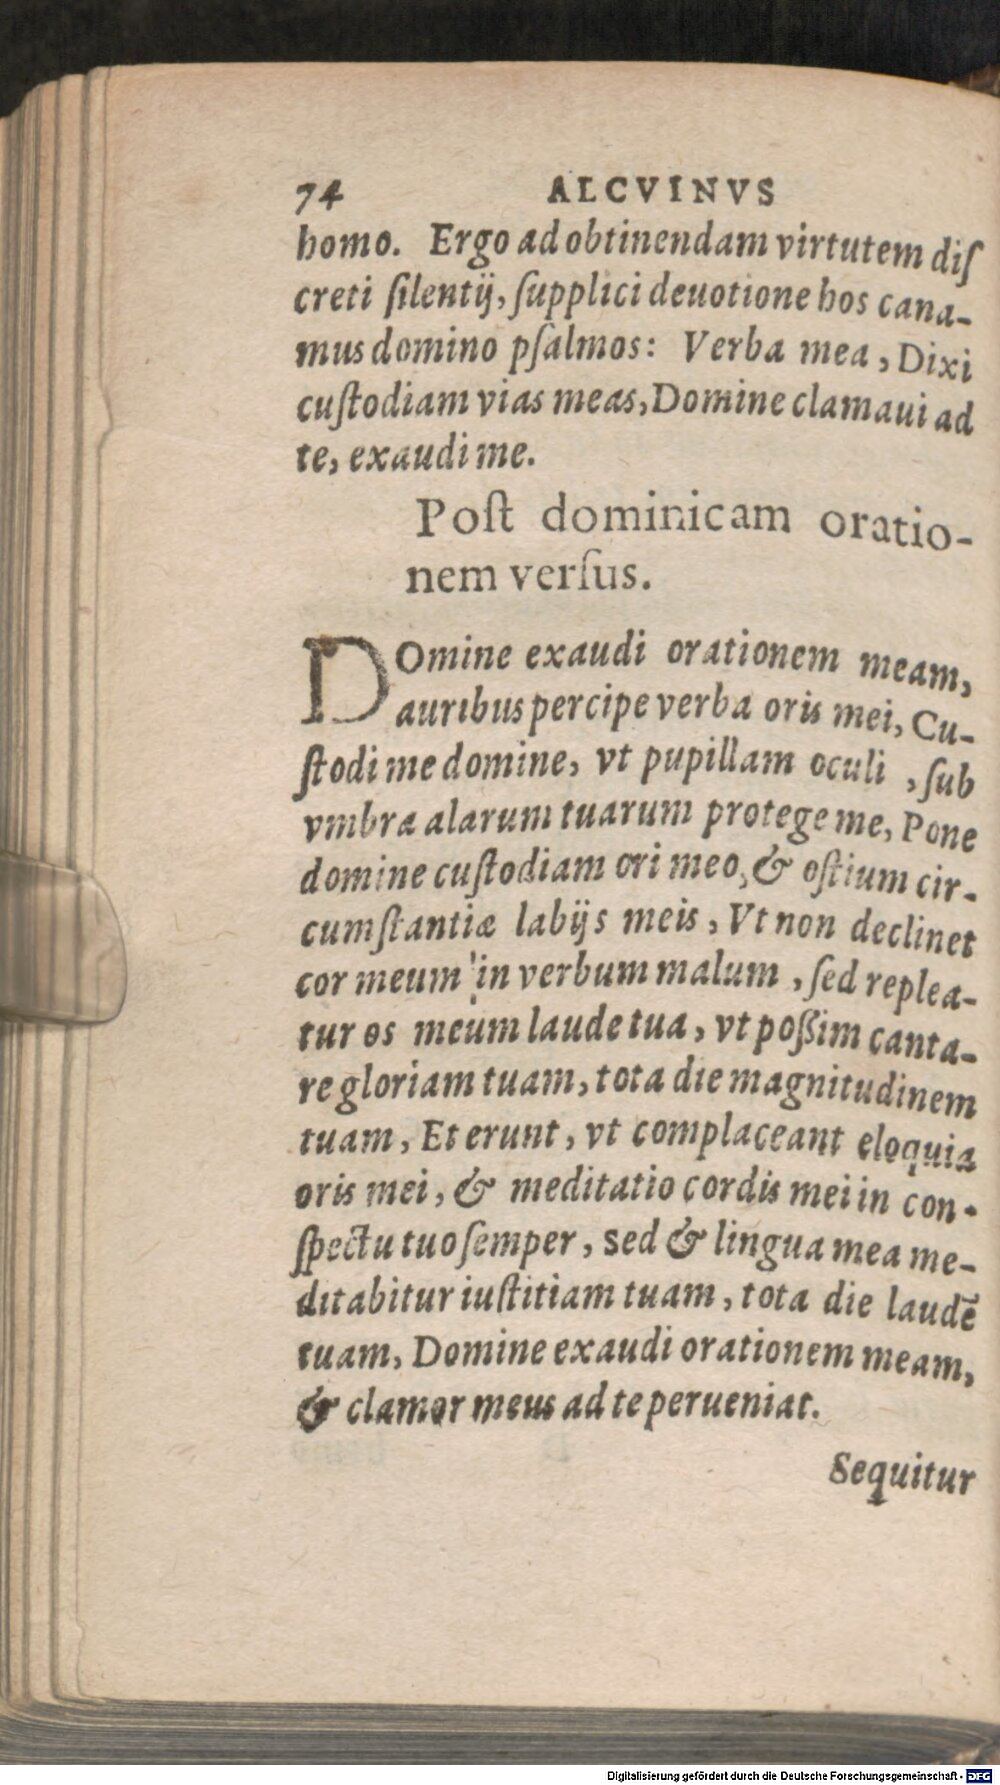 74 ALCVINVS
homo. Ergo ad obtinendam virtutem diſ
creti ſilentij, ſupplici deuotione hos cana-
mus domino pſalmos: Verba mea, Dixi
cuſtodiam vias meas, Domine clamaui ad
te, exaudi me.
Poſt dominicam oratio-
nem verſus.
DOmine exaudi orationem meam,
auribus percipe verba oris mei, Cu-
ſtodi me domine, vt pupillam oculi, ſub
vmbra alarum tuarum protege me, Pone
domine cuſtodiam ori meo, & oſtium cir-
cumſtantiæ labijs meis, Vt non declinet
cor meum in verbum malum, ſed replea-
tur os meum laude tua, vt poßim canta-
re gloriam tuam, tota die magnitudinem
tuam, Et erunt, vt complaceant eloquia
oris mei, & meditatio cordis mei in con-
ſpectu tuo ſemper, sed & lingua mea me-
ditabitur iuſtitiam tuam, tota die laudē
tuam, Domine exaudi orationem meam,
& clamor meus ad te perueniat.
Sequitur
Digitalisierung gefördert durch die Deutsche Forschungsgemeinschaft - DFG